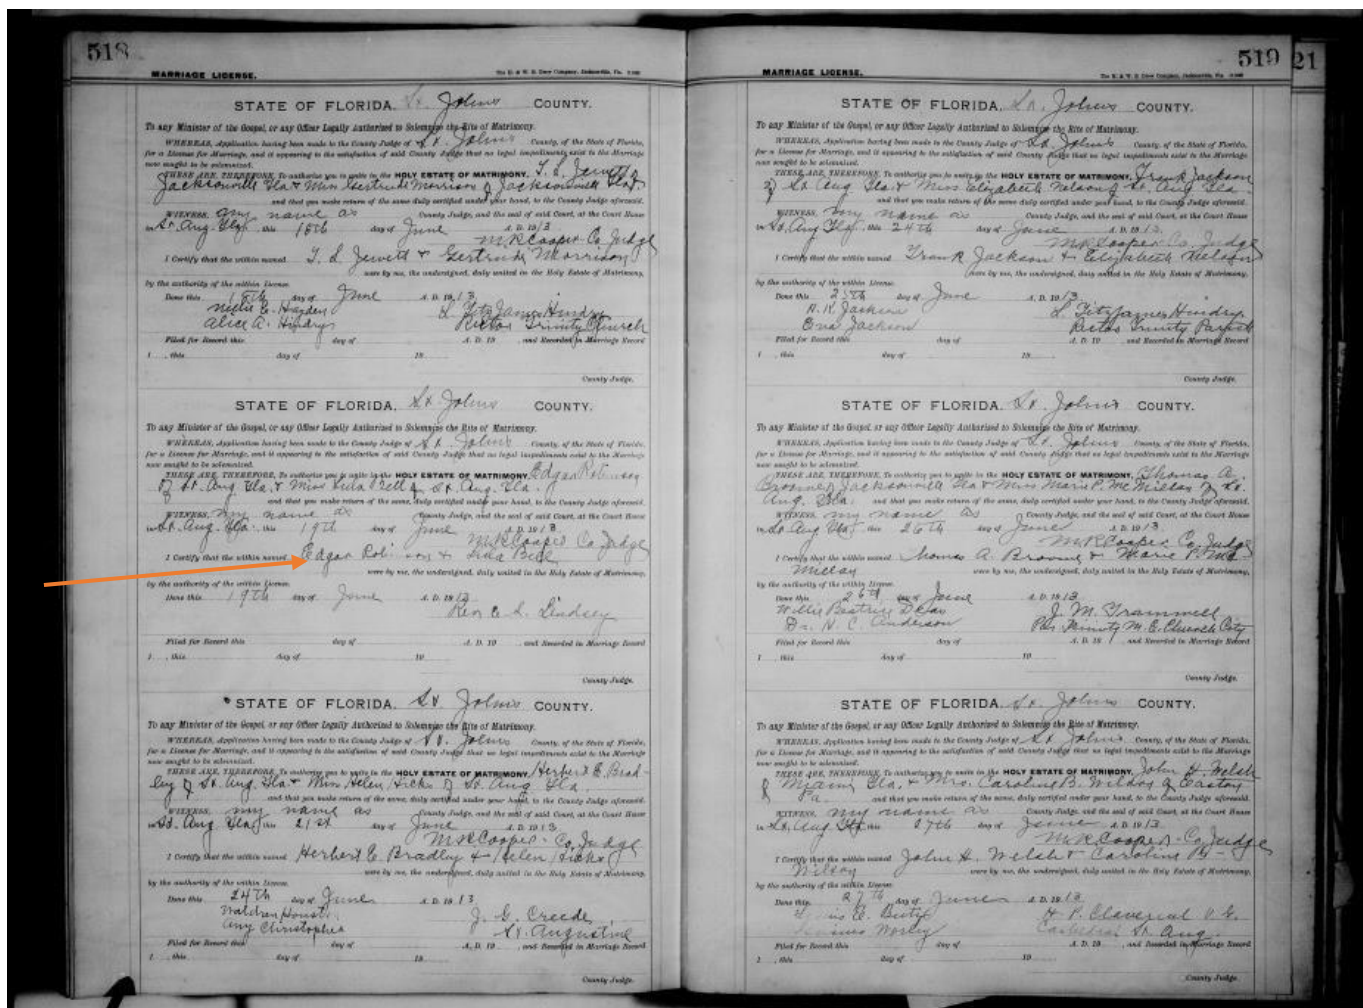 518
MARRIAGE LICENSE.
STATE OF FLORIDA, St. Johns COUNTY.
To any Minister of the Gospel, or any Officer Legally Authorized to Solemnize the Rite of Matrimony.
WHEREAS, Application having been made to the County Judge of St. Johns County, of the State of Florida,
for a License for Marriage, and it appearing to the satisfaction of said County Judge that no legal impediments exist to the Marriage
now sought to be solemnized.
THESE ARE, THEREFORE, To authorize you to unite in the HOLY ESTATE OF MATRIMONY, T. S. Jewett of
Jacksonville Fla & Miss Gertrude Morrison of Jacksonville Fla
and that you make return of the same duly certified under your hand, to the County Judge aforesaid.
WITNESS, my name as County Judge, and the seal of said Court, at the Court House
in St. Aug. Fla. this 18th day of June A. D. 1913
M R Cooper Co. Judge
I Certify that the within named T. S. Jewett & Gertrude Morrison
were by me, the undersigned, duly united in the Holy Estate of Matrimony,
by the authority of the within License.
Done this 18th day of June A. D. 1913
Nellie E. Hayden L. FitzJames Hindry
Alice A. Hindry Rector Trinity Church
Filed for Record this day of A. D. 19 , and Recorded in Marriage Record
1 , this day of 19
County Judge.
STATE OF FLORIDA, St Johns COUNTY.
To any Minister of the Gospel, or any Officer Legally Authorized to Solemnize the Rite of Matrimony.
WHEREAS, Application having been made to the County Judge of St. Johns County, of the State of Florida,
for a License for Marriage, and it appearing to the satisfaction of said County Judge that no legal impediments exist to the Marriage
now sought to be solemnized.
THESE ARE, THEREFORE, To authorize you to unite in the HOLY ESTATE OF MATRIMONY, Edgar Robinson
of St. Aug Fla. & Miss Lula Bell of St. Aug. Fla.
and that you make return of the same, duly certified under your hand, to the County Judge aforesaid.
WITNESS, my name as County Judge, and the seal of said Court, at the Court House
in St. Aug. Fla. this 19th day of June A. D. 1913
M R Cooper Co Judge
I Certify that the within named Edgar Robinson & Lula Bell
were by me, the undersigned, duly united in the Holy Estate of Matrimony,
by the authority of the within License.
Done this 19th day of June A. D. 1913
Rev A. L. Lindsey
Filed for Record this day of A. D. 19 , and Recorded in Marriage Record
1 , this day of 19
County Judge.
STATE OF FLORIDA, St. Johns COUNTY.
To any Minister of the Gospel, or any Officer Legally Authorized to Solemnize the Rite of Matrimony.
WHEREAS, Application having been made to the County Judge of St. Johns County, of the State of Florida,
for a License for Marriage, and it appearing to the satisfaction of said County Judge that no legal impediments exist to the Marriage
now sought to be solemnized.
THESE ARE, THEREFORE, To authorize you to unite in the HOLY ESTATE OF MATRIMONY, Herbert E. Brad-
ley of St. Aug. Fla. & Miss Helen Hicks of St. Aug Fla.
and that you make return of the same, duly certified under your hand, to the County Judge aforesaid.
WITNESS, my name as County Judge, and the seal of said Court, at the Court House
in St. Aug. Fla. this 21st day of June A. D. 1913.
M R Cooper Co. Judge
I Certify that the within named Herbert E. Bradley & Helen Hicks
were by me, the undersigned, duly united in the Holy Estate of Matrimony,
by the authority of the within License.
Done this 24th day of June A. D. 1913
J. G. Creede
Amy Christopher St. Augustine
Filed for Record this day of A. D. 19 , and Recorded in Marriage Record
1 , this day of 19
County Judge.
519
21
MARRIAGE LICENSE.
STATE OF FLORIDA, St. Johns COUNTY.
To any Minister of the Gospel, or any Officer Legally Authorized to Solemnize the Rite of Matrimony.
WHEREAS, Application having been made to the County Judge of St. Johns County, of the State of Florida,
for a License for Marriage, and it appearing to the satisfaction of said County Judge that no legal impediments exist to the Marriage
now sought to be solemnized.
THESE ARE, THEREFORE, To authorize you to unite in the HOLY ESTATE OF MATRIMONY, Frank Jackson
of St. Aug Fla. & Miss Elizabeth Nelson of St. Aug Fla.
and that you make return of the same duly certified under your hand, to the County Judge aforesaid.
WITNESS, my name as County Judge, and the seal of said Court, at the Court House
in St. Aug Fla. this 24th day of June A. D. 1913.
M R Cooper Co. Judge
I Certify that the within named Frank Jackson & Elizabeth Nelson
were by me, the undersigned, duly united in the Holy Estate of Matrimony,
by the authority of the within License.
Done this 25th day of June A. D. 1913.
A. K. Jackson L. FitzJames Hindry
Eva Jackson Rector Trinity Parish
Filed for Record this day of A. D. 19 , and Recorded in Marriage Record
1 , this day of 19
County Judge.
STATE OF FLORIDA, St. Johns COUNTY.
To any Minister of the Gospel, or any Officer Legally Authorized to Solemnize the Rite of Matrimony.
WHEREAS, Application having been made to the County Judge of St. Johns County, of the State of Florida,
for a License for Marriage, and it appearing to the satisfaction of said County Judge that no legal impediments exist to the Marriage
now sought to be solemnized.
THESE ARE, THEREFORE, To authorize you to unite in the HOLY ESTATE OF MATRIMONY, Thomas A.
Browne of Jacksonville Fla & Miss Marie P. McMillay of St.
Aug. Fla. and that you make return of the same, duly certified under your hand, to the County Judge aforesaid.
WITNESS my name as County Judge, and the seal of said Court, at the Court House
in St. Aug Fla. this 26th day of June A. D. 1913.
M R Cooper Co. Judge
I Certify that the within named Thomas A. Browne & Marie P. Mc
Millay were by me, the undersigned, duly united in the Holy Estate of Matrimony,
by the authority of the within License.
Done this 26th day of June A. D. 1913
Willie Beatrice J. M. Trammell
Dr. N. C. Anderson Trinity M. E. Church City
Filed for Record this day of A. D. 19 , and Recorded in Marriage Record
1 , this day of 19
County Judge.
STATE OF FLORIDA, St. Johns COUNTY.
To any Minister of the Gospel, or any Officer Legally Authorized to Solemnize the Rite of Matrimony.
WHEREAS, Application having been made to the County Judge of St. Johns County, of the State of Florida,
for a License for Marriage, and it appearing to the satisfaction of said County Judge that no legal impediments exist to the Marriage
now sought to be solemnized.
THESE ARE, THEREFORE, To authorize you to unite in the HOLY ESTATE OF MATRIMONY, John H. Welsh
of Miami Fla. & Mrs. Caroline B. Wilson of Easton
Pa. and that you make return of the same, duly certified under your hand, to the County Judge aforesaid.
WITNESS, my name as County Judge, and the seal of said Court, at the Court House
in St. Aug Fla this 27th day of June A. D. 1913.
M R Cooper Co. Judge
I Certify that the within named John H. Welsh & Caroline B.
Wilson were by me, the undersigned, duly united in the Holy Estate of Matrimony,
by the authority of the within License.
Done this 27th day of June A. D. 1913
H. P. Clavreul V. G.
Worley Cathedral St. Aug.
Filed for Record this day of A. D. 19 , and Recorded in Marriage Record
1 , this day of 19
County Judge.